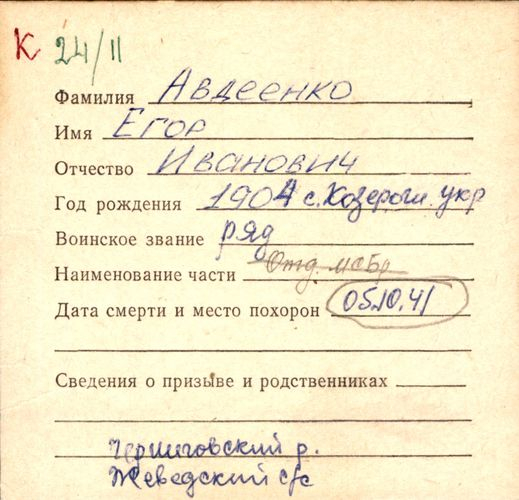 К 24/II
Фамилия Авдеенко
Имя Егор
Отчество Иванович
Год рождения 1904 с. Козероги укр
Воинское звание ряд
Наименование части Отд. мсбр
Дата смерти и место похорон 05.10.41
Сведения о призыве и родственниках
Черниговский р.
Жеведский с/с